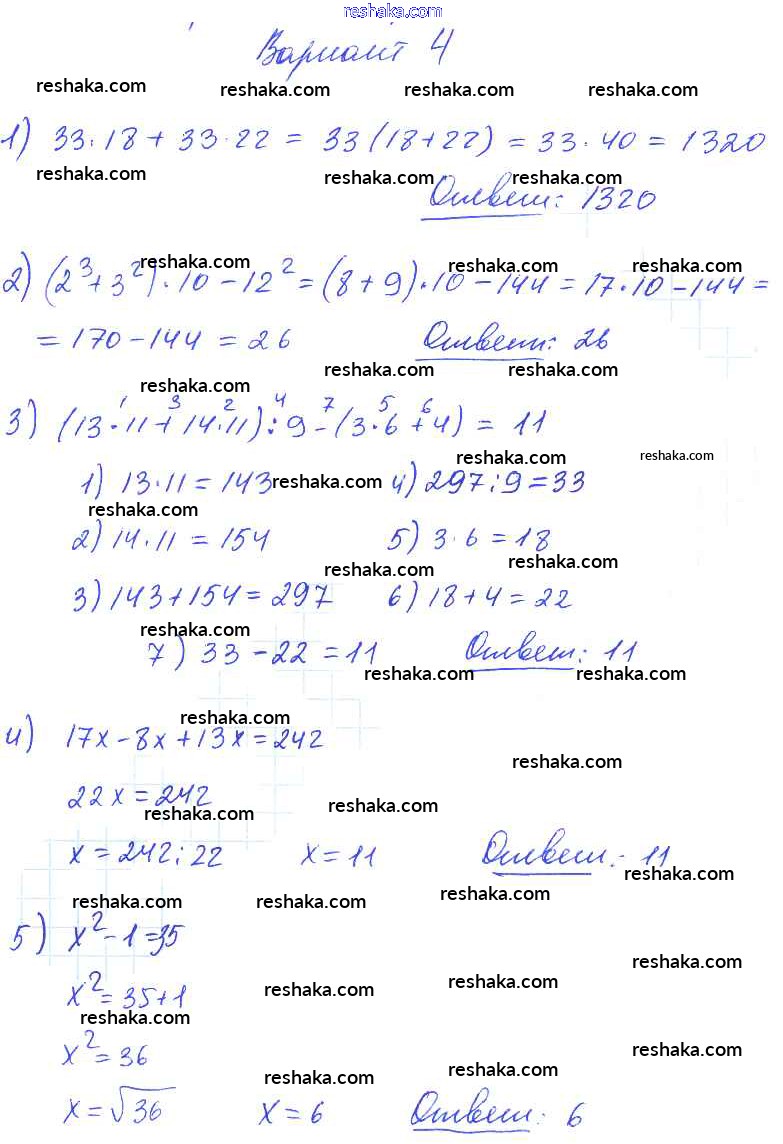 reshaka.com
Вариант 4
reshaka.com reshaka.com reshaka.com reshaka.com
1) 33·18 + 33·22 = 33(18+22) = 33·40 = 1320
reshaka.com reshaka.com reshaka.com
Ответ: 1320
reshaka.com reshaka.com reshaka.com
2) (2³+3²)·10 - 12² = (8+9)·10 - 144 = 17·10 - 144 =
= 170 - 144 = 26 Ответ: 26
reshaka.com reshaka.com reshaka.com
1 3 2 4 7 5 6
3) (13·11 + 14·11) : 9 - (3·6 + 4) = 11
reshaka.com reshaka.com
1) 13·11 = 143 reshaka.com 4) 297:9 = 33
reshaka.com
2) 14·11 = 154 5) 3·6 = 18
reshaka.com reshaka.com
3) 143+154 = 297 6) 18+4 = 22
reshaka.com
7) 33 - 22 = 11 Ответ: 11
reshaka.com reshaka.com
reshaka.com
4) 17x - 8x + 13x = 242
reshaka.com
22x = 242
reshaka.com reshaka.com
x = 242:22 x = 11 Ответ: 11
reshaka.com
reshaka.com reshaka.com reshaka.com
5) x² - 1 = 35
reshaka.com
x² = 35+1 reshaka.com reshaka.com
reshaka.com
x² = 36 reshaka.com
reshaka.com reshaka.com
x = √36 x = 6 Ответ: 6